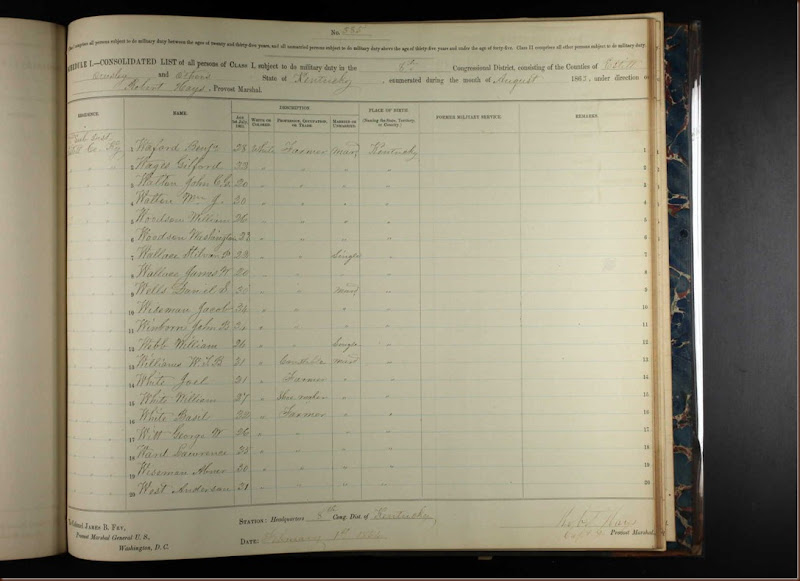 No. 385
comprise all persons subject to do military duty between the ages of twenty and thirty-five years, and all unmarried persons subject to do military duty above the age of thirty-five years and under the age of forty-five. Class II comprises all other persons subject to do military duty.
I.—CONSOLIDATED LIST of all persons of CLASS I, subject to do military duty in the 8th Congressional District, consisting of the Counties of Estill
Owsley and State of Kentucky, enumerated during the month of August 1863, under direction of
Robert Hays, Provost Marshal.
RESIDENCE. NAME. DESCRIPTION. PLACE OF BIRTH. FORMER MILITARY SERVICE. REMARKS.
AGE 1st July, 1863. WHITE OR COLORED. PROFESSION, OCCUPATION, OR TRADE. MARRIED OR UNMARRIED. (Naming the State, Territory, or Country.)
Co. Ky 1 Waford Benj. 28 White Farmer Mard Kentucky 1
2 Wages Gilford 23 " " " " 2
3 Walton John C. G. 20 " " " " 3
4 Walton Wm J. 20 " " " " 4
5 Woodson William 26 " " " " 5
6 Woodson Washington 23 " " " " 6
7 Wallace 23 " " Single " 7
8 Wallace James W 20 " " " " 8
9 Wells Daniel S. " " Mard " 9
10 Wiseman Jacob 34 " " " " 10
11 Winborn John B 24 " " " " 11
12 Webb William 26 " " Single " 12
13 Williams W. L. B 21 " Mard " 13
14 White Joel 21 " Farmer " " 14
15 White William 27 " Shoe maker " " 15
16 White Basil 22 " Farmer " " 16
17 Witt George W 26 " " " " 17
18 Want Lawrence 25 " " " " 18
19 Wiseman Abner 20 " " " " 19
20 West Anderson 21 " " " " 20
Colonel JAMES B. FRY,
Provost Marshal General U. S.,
Washington, D. C.
STATION: Headquarters 8th Cong. Dist. of Kentucky
DATE: February 1st 1864
Robt Hays
Capt & Provost Marshal.